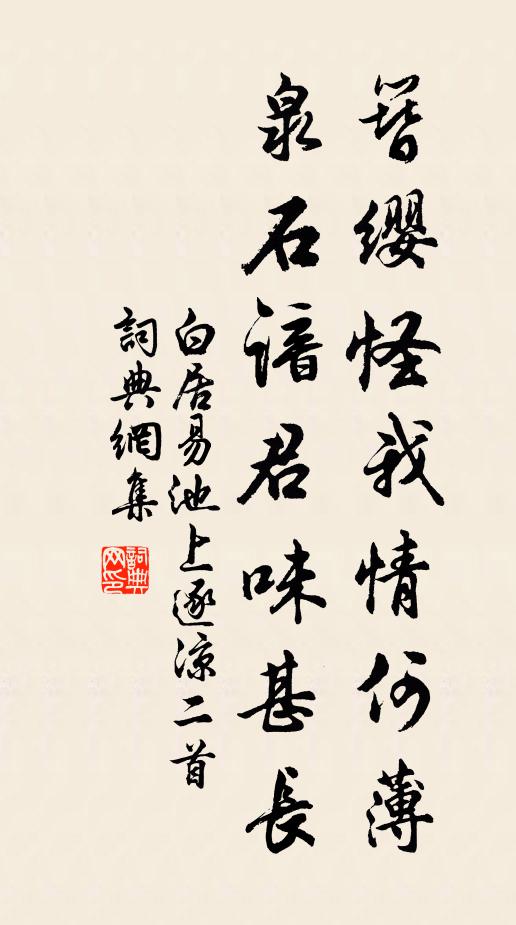 簪纓怪我情何薄
泉石諳君味甚長
白居易池上逐涼二首
詞典網集
詞典网印